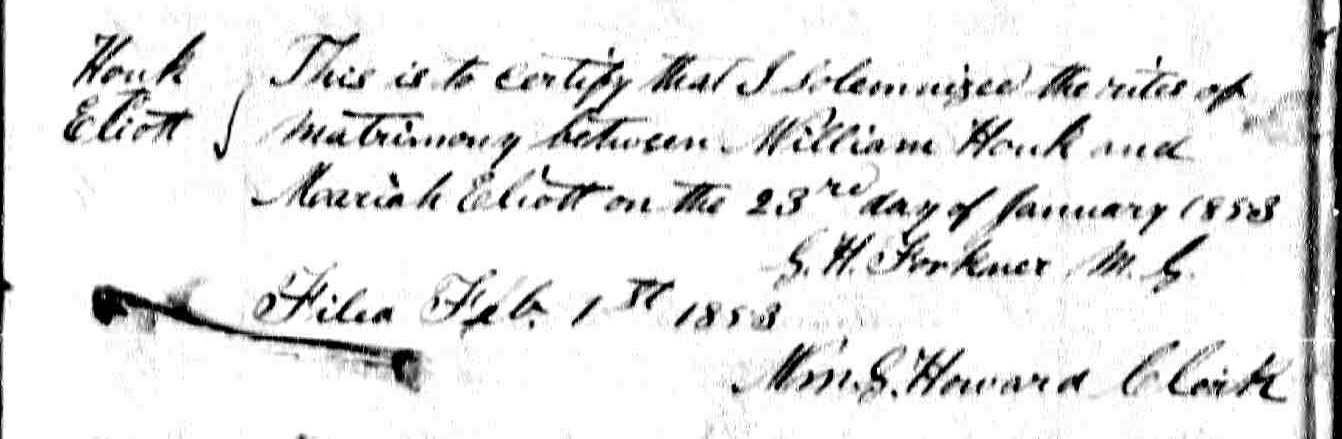 Houk
Eliott
This is to certify that I solemnized the rites of
Matrimony between William Houk and
Maariah Eliott on the 23rd day of January 1853
G. H. Forkner M. G.
Filed Feb. 1st 1853
Wm. G. Howard Clerk